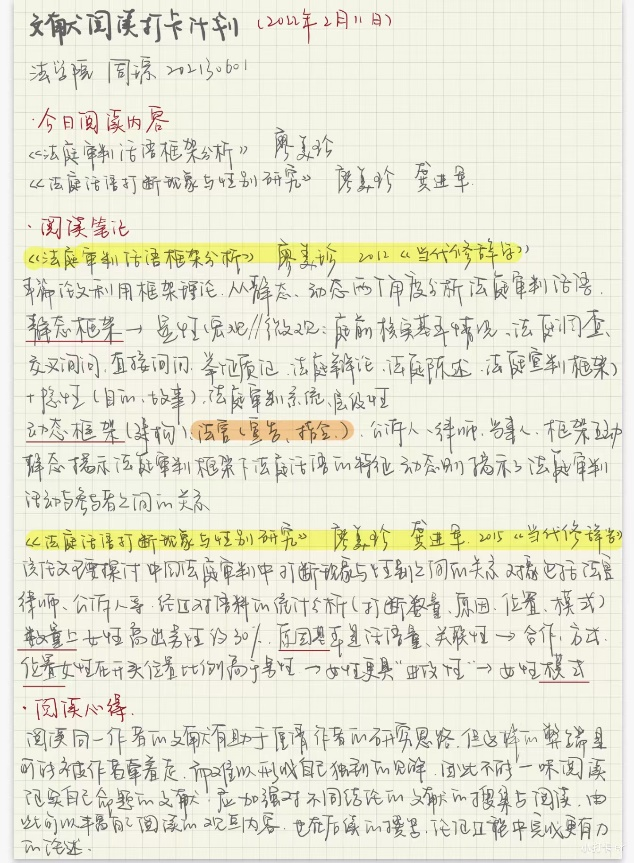 文献阅读打卡计划 (2022年2月11日)
法学院 周琼 202130601
·今日阅读内容
《法庭审判话语框架分析》 廖美珍
《法庭话语打断现象与性别研究》 廖美珍 龚进军
·阅读笔记
《法庭审判话语框架分析》 廖美珍 2012《当代修辞学》
本篇论文利用框架理论,从静态、动态两个角度分析法庭审判话语.
静态框架→显性:宏观//微观:庭前核实基本情况、法庭调查、
交叉询问、直接询问、举证质证、法庭辩论、法庭陈述、法庭宣判框架)
+隐性(目的、故事).法庭审判系统、层级性
动态框架(建构):法官(宣告、指令).公诉人、律师、当事人、框架互动
静态揭示法庭审判框架下法庭话语的特征 动态则揭示了法庭审判
活动与参与者之间的关系
《法庭话语打断现象与性别研究》 廖美珍 龚进军.2015《当代修辞学》
该论文主要探讨中国法庭审判中打断现象与性别之间的关系 对象包括法官
律师、公诉人等.经过对语料的统计分析(打断数量、原因、位置、模式)
数量上女性高出男性约30%.原因基本是话语量、关联性→合作、方式.
位置女性在开头位置比例高于男性→女性更具"曲政性"→女性模式
·阅读心得.
阅读同一作者的文献有助于厘清作者的研究思路,但这样的弊端是
可能被作者牵着走,而难以形成自己独到的见解.因此不能一味阅读
证实自己命题的文献,应加强对不同结论的文献的搜集与阅读.由
此可以丰富自己阅读的观点内容,也在后续的提笔,论证过程中完成更有力
的论述.